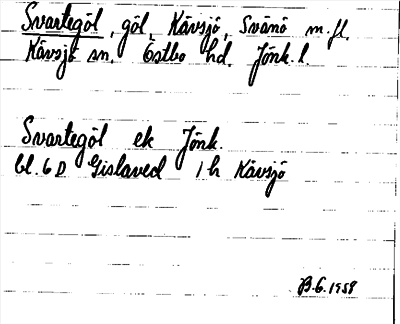 Svartegöl, göl, Kävsjö, Svänö m.fl.
Kävsjö sn. Östbo hd. Jönk. l.
Svartegöl ek Jönk.
bl. 6 D Gislaved 1 h Kävsjö
B.G. 1958